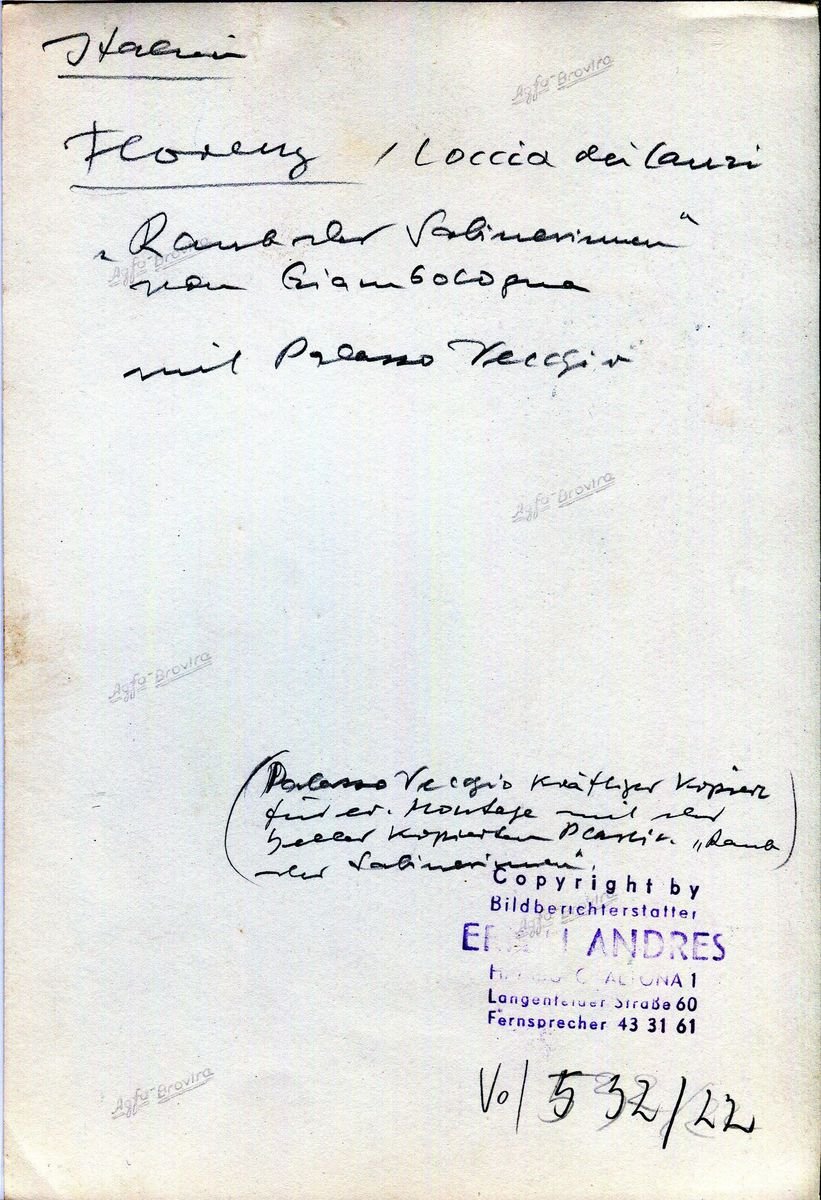 Italien
Agfa-Brovira
Florenz / Loccia dei Lanzi
„Raub der Sabinerinnen“
Agfa-Brovira
von Giambologna
mit Palazzo Vecchio
Agfa-Brovira
Agfa-Brovira
(Palazzo Vecchio kräftiger kopiert
für ev. Montage mit der
heller kopierten Plastik. „Raub
der Sabinerinnen“.)
Copyright by
Bildberichterstatter
Agfa-Brovira
ANDRES
ALTONA 1
Langenfelder Straße 60
Fernsprecher 43 31 61
Agfa-Brovira
Vo/532/22